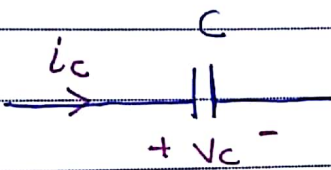 C
ic
+ Vc -